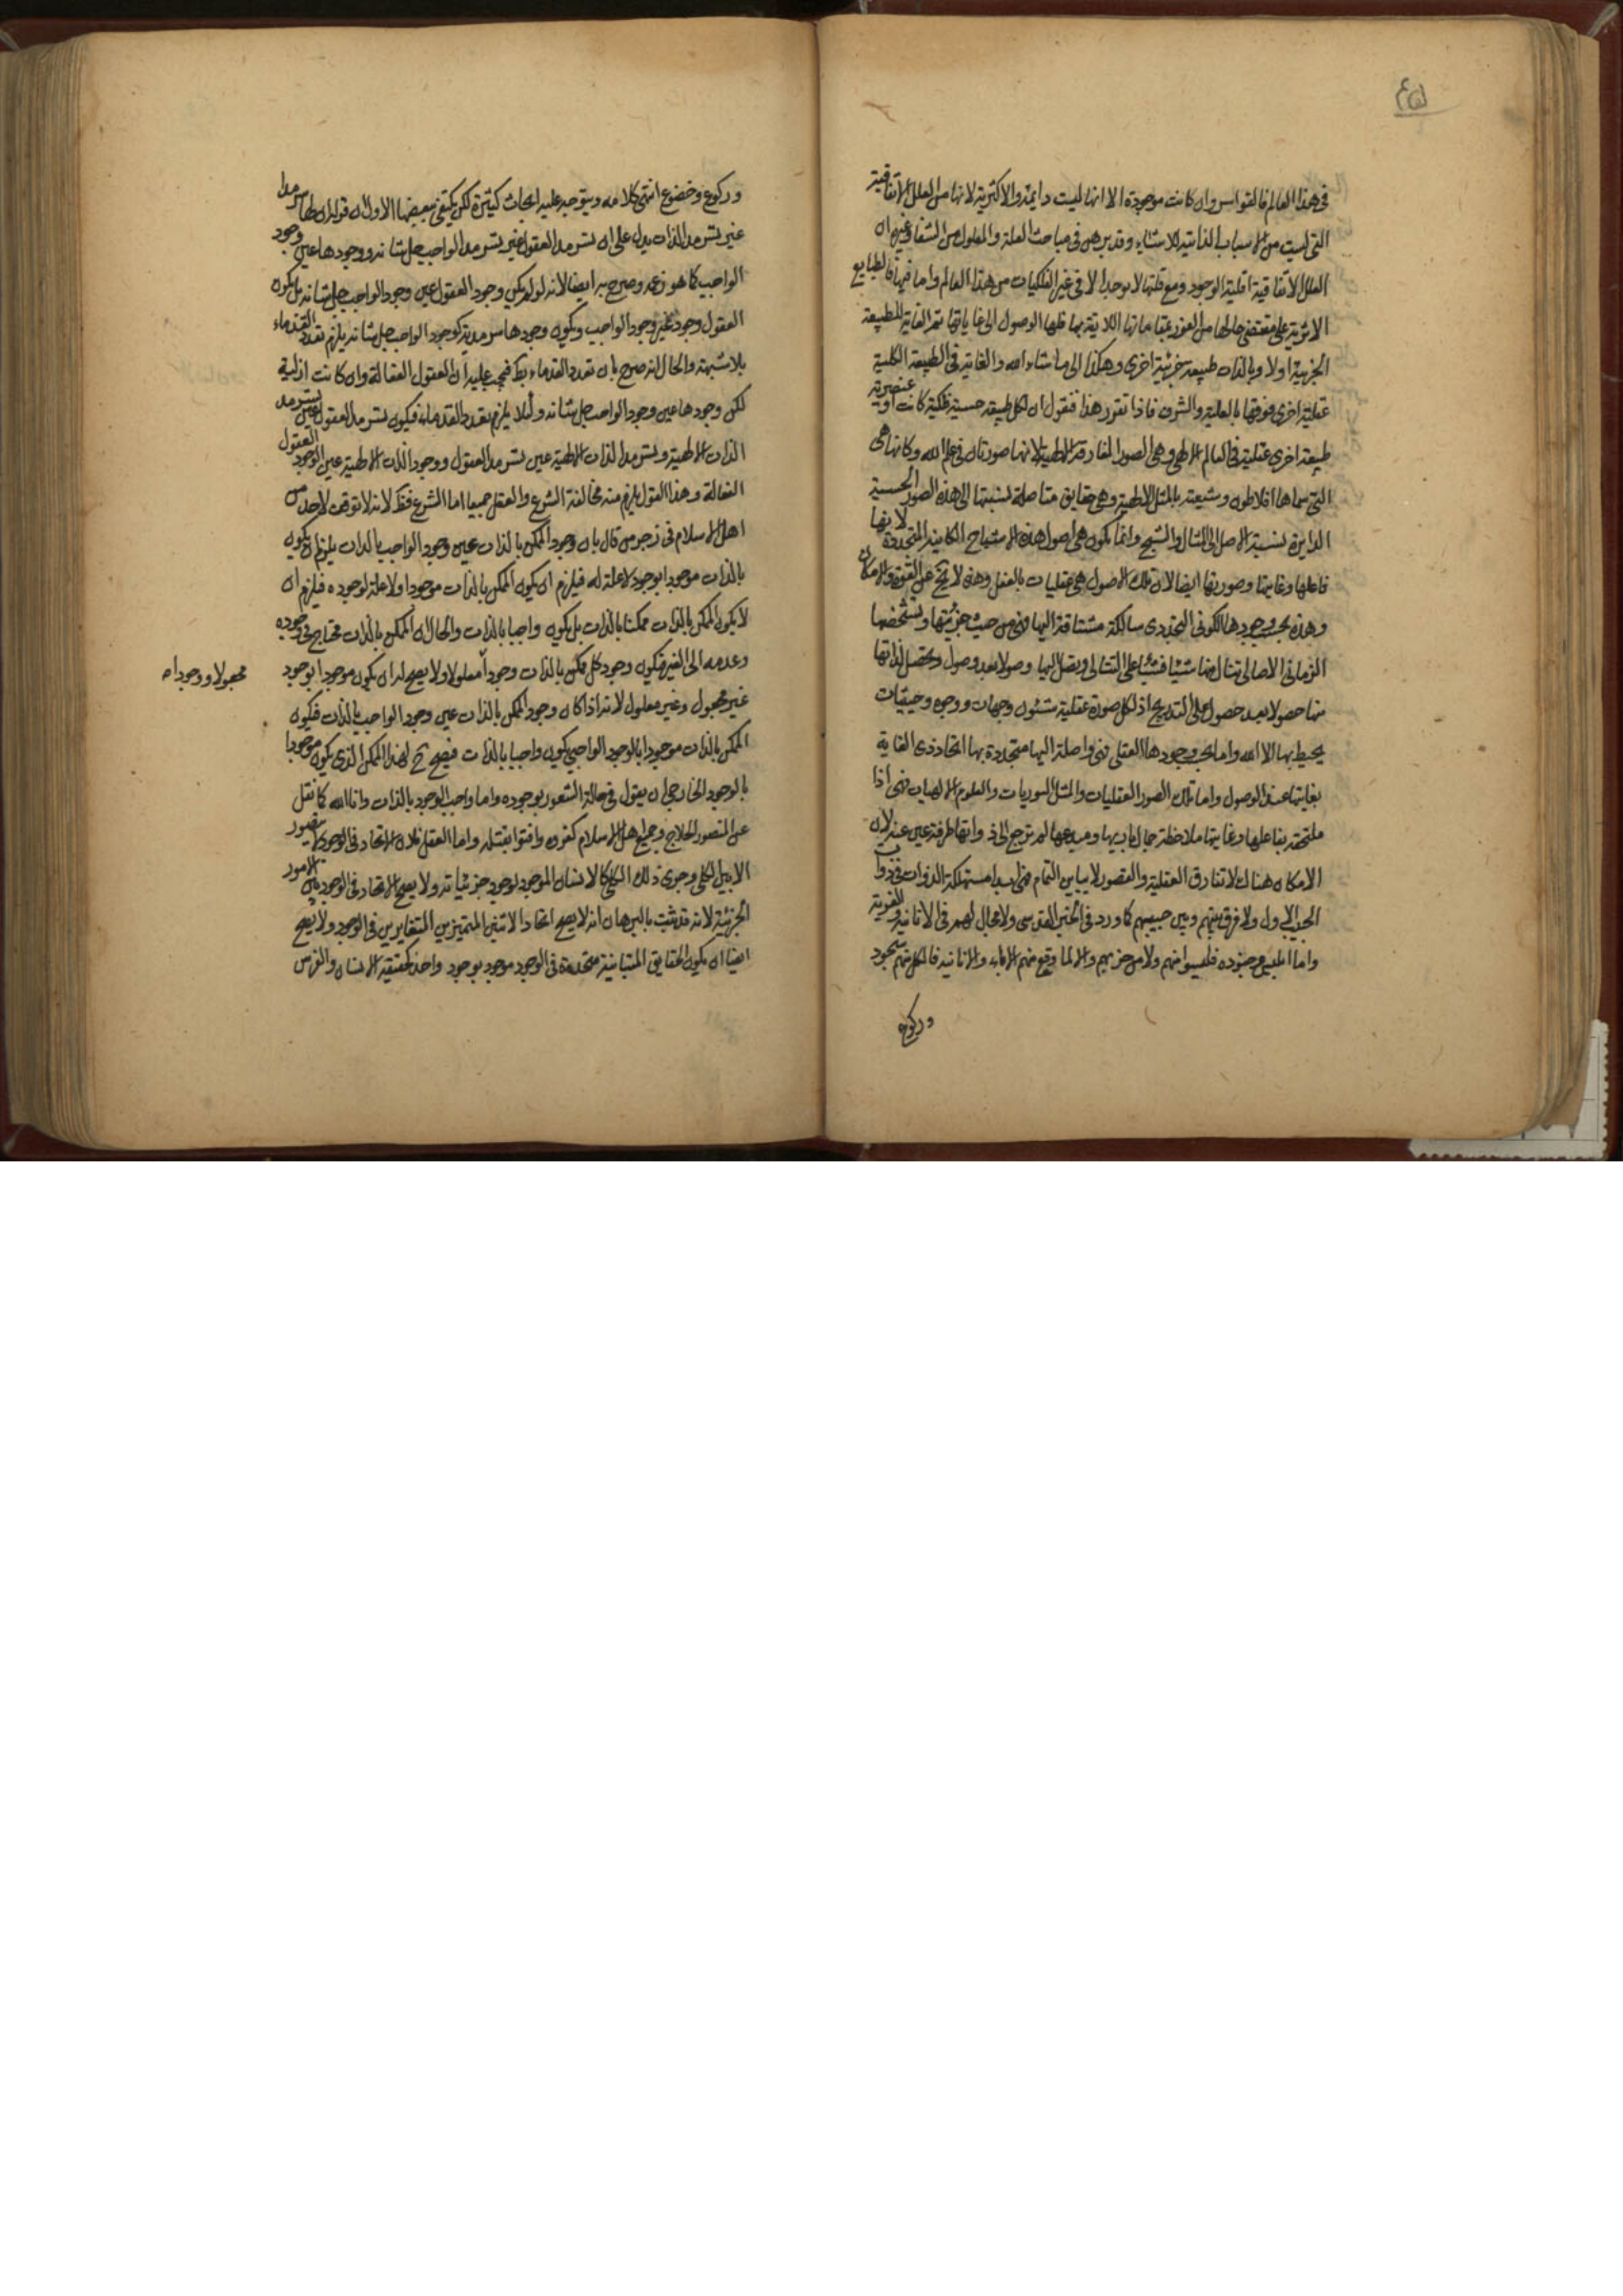 في هذا العالم فالقواسر وان كانت موجودة الا انها ليست دايمة والاكثرية لانها من العلل الاتفاقية
التي ليست من الاسباب الذاتية للاشياء وقد برهن في مباحث العلة والمعلول من الشفا وغيره ان
العلل الاتفاقية اقلية الوجود ومع قلتها لا يوجد الا في غير الفلكيات من هذا العالم واما فيها فالطبايع
الاثيرية على مقتضى حالها من الفوز بمقاماتها اللايقة بها فلها الوصول الى غاياتها ثم الغاية للطبيعة
الجزئية اولا وبالذات طبيعة جزئية اخرى وهكذا الى ما شاء الله والغاية في الطبيعة الكلية
عقلية اخرى فوقها بالعلية والشرف فاذا تقرر هذا فنقول ان لكل طبيعة حسية فلكية كانت او عنصرية
طبيعة اخرى عقلية في العالم الالهي وهي الصور المفارقة الالهية لانها صورتان في علم الله وكانها هي
التي سماها افلاطون وشيعته بالمثل الالهية وهي حقايق متاصلة نسبتها الى هذه الصور الحسية
الداثرة نسبة الاصل الى المثال والشبح وانما يكون هي اصول هذه الاشباح الكاينة المتجددة لانها
فاعلها وغايتها وصورتها ايضا لان تلك الاصول هي عقليات بالفعل وهذه لا تخ عن القوة والامكان
وهذه بحسب وجودها الكوني التجددي سالكة مشتاقة اليها فهي من حيث جزئيتها وتشخصها
الزماني الاتصالي تنال منها شيئا فشيئا على التتالي ويصل اليها وصولا بعد وصول ويحصل لذاتها
منها حصولا بعد حصول على التدريج اذ لكل صورة عقلية شئون وجهات ووجوه وحيثيات
يحيط بها الا الله واما بحسب وجودها العقلي فهي واصلة اليها متحدة بها اتحاد ذي الغاية
بغايتها عند الوصول واما تلك الصور العقليات والمثل النوريات والعلوم الالهيات فهي اذا
ملتحقة بفاعلها وغايتها ملاحظة جمال باريها ومبدعها لم ترجع الى ذواتها طرفة عين عنه لان
الامكان هناك لا تفارق الفعلية والقصور لا يباين التمام فهي ابدا مستهلكة الذوات في ذوات
الحبيب الاول ولا فرق بينهم وبين حبيبهم كما ورد في الخبر القدسي ولا مجال لهم في الانانية والغيرية
واما ابليس وجنوده فليسوا منهم ولا من حزبهم والا لما وقع منهم الاباء والانانية فالكل منهم سجود
وركوع
وركوع وخضوع انتهى كلامه ويتوجه عليه ابحاث كثيرة لكن يكتفى ببعضها الاول ان قوله ان لها سرمدا
غير تسرمد الذات يدل على ان تسرمد العقول غير تسرمد الواجب جل شانه ووجودها عين وجود
الواجب كما هو زعمه وصرح به ايضا لانه لو لم يكن وجود العقول عين وجود الواجب جل شانه بل يكون
العقول وجود غير وجود الواجب ويكون وجودها سرمدية كوجود الواجب جل شانه يلزم تعدد القدماء
بلا شبهة والحال انه صرح بان تعدد القدماء بط فيجب عليه ان العقول الفعالة وان كانت ازلية
لكن وجودها عين وجود الواجب جل شانه ولئلا يلزم تعدد القدماء فيكون تسرمد العقول عين تسرمد
الذات الالهية وتسرمد الذات الالهية عين تسرمد العقول ووجود الذات الالهية عين الوجود العقول
الفعالة وهذا القول يلزم منه مخالفة الشرع والعقل جميعا اما الشرع فظ لانه لا توقف لاحد من
اهل الاسلام في زجر من قال بان وجود الممكن بالذات عين وجود الواجب بالذات يلزم ان يكون
بالذات موجودا بوجود لا علة له فيلزم ان يكون الممكن بالذات موجودا ولا علة لوجوده فيلزم ان
لا يكون الممكن بالذات ممكنا بالذات بل يكون واجبا بالذات والحال ان الممكن بالذات محتاج في وجوده
وعدمه الى الغير فيكون وجود كل ممكن بالذات وجوداً معلولا ولا يصح له ان يكون موجودا بوجود
مجعولا ووجوداه
غير مجعول وغير معلول لانه اذا كان وجود الممكن بالذات عين وجود الواجب بالذات فيكون
الممكن بالذات موجودا بالوجود الواجبي يكون واجبا بالذات فيصح ح لهذا الممكن الذي يكون موجودا
بالوجود الخارجي ان يقول في حالة الشعور بوجوده واما واجب الوجود بالذات وانا الله كما نقل
عن المنصور الحلاج وجميع اهل الاسلام كفروه وافتوا بقتله واما العقل فلان الاتحاد في الوجود يتصور
الا بين الكلي وجزئي ذلك الكلي كالانسان الموجود لوجود جزئياته ولا يصح الاتحاد في الوجود بين الامور
الجزئية لانه قد ثبت بالبرهان انه لا يصح اتحاد الاثنين المتميزين المتغايرين في الوجود ولا يصح
ايضا ان يكون الحقايق المتباينة متحدة في الوجود موجود بوجود واحد كحقيقة الانسان والفرس